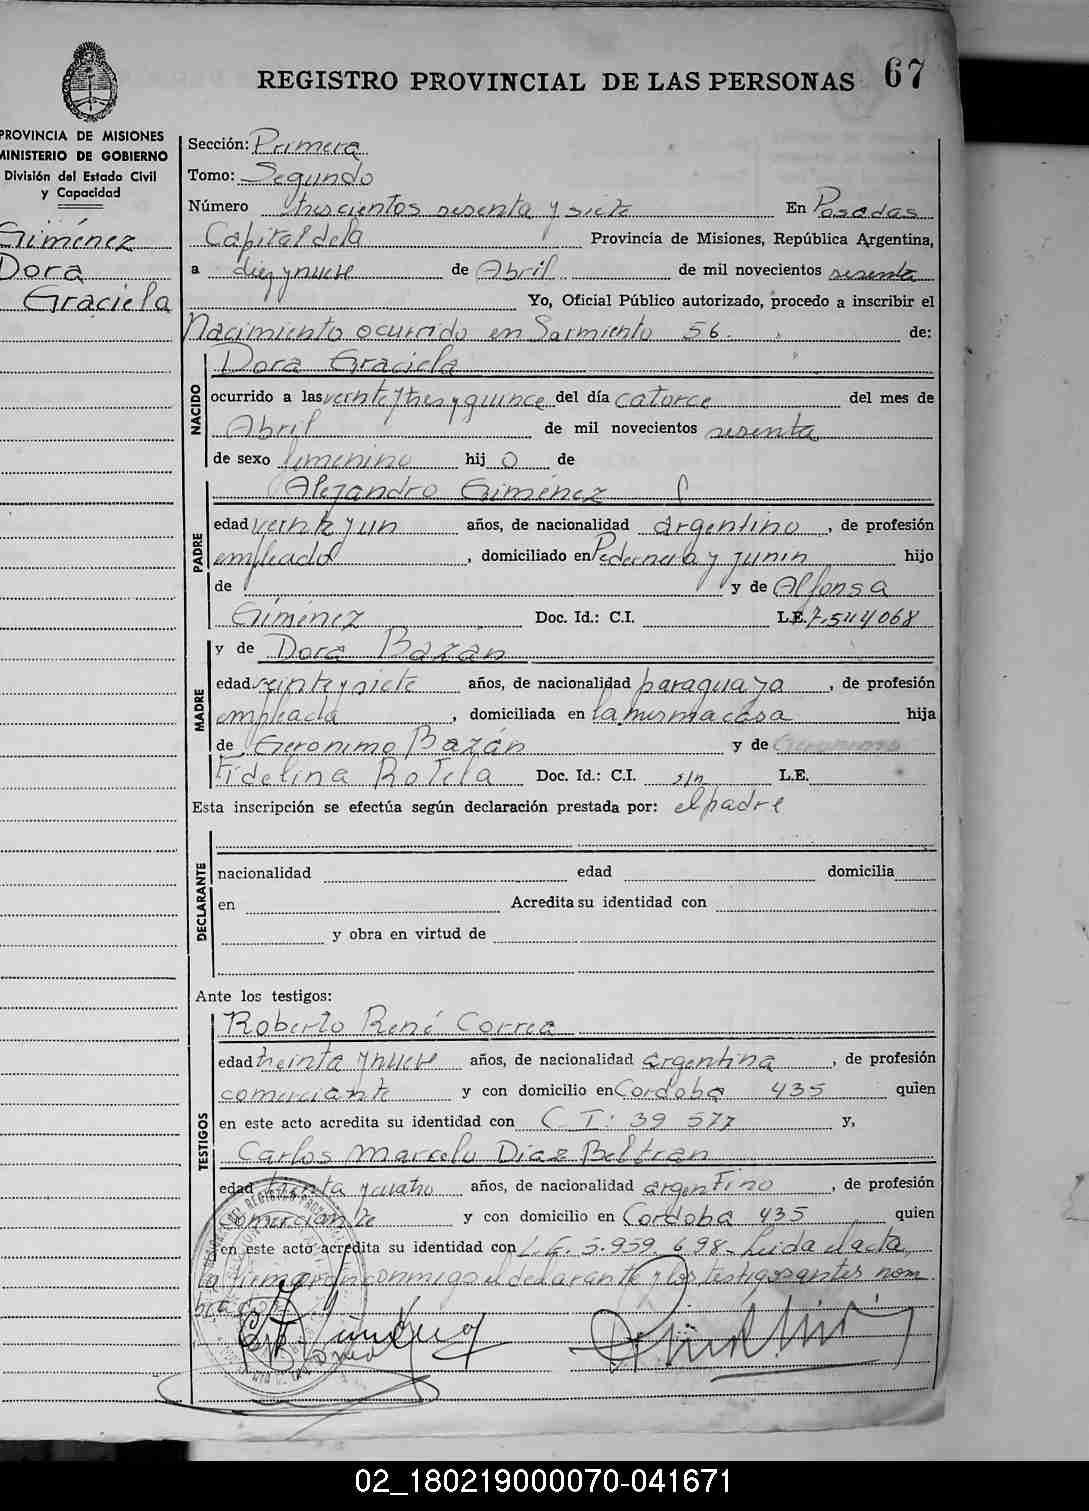 REGISTRO PROVINCIAL DE LAS PERSONAS 67
PROVINCIA DE MISIONES
MINISTERIO DE GOBIERNO
División del Estado Civil
y Capacidad
Giménez
Dora
Graciela
Sección: Primera
Tomo: Segundo
Número trescientos sesenta y siete En Posadas
Capital de la Provincia de Misiones, República Argentina,
a diez y nueve de Abril de mil novecientos sesenta
Yo, Oficial Público autorizado, procedo a inscribir el
Nacimiento ocurrido en Sarmiento 56 de:
NACIDO
Dora Graciela
ocurrido a las veinte y tres y quince del día catorce del mes de
Abril de mil novecientos sesenta
de sexo femenino hij O de
PADRE
Alejandro Giménez
edad veinte y un años, de nacionalidad argentino, de profesión
empleado, domiciliado en Pedernera y Junin hijo
de y de Alfonsa
Giménez Doc. Id.: C.I. L.E. 7.544068
MADRE
y de Dora Bazán
edad veinte y siete años, de nacionalidad paraguaya, de profesión
empleada, domiciliada en la misma casa hija
de Geronimo Bazán y de
Fidelina Rotela Doc. Id.: C.I. s/n L.E.
Esta inscripción se efectúa según declaración prestada por: el padre
DECLARANTE
nacionalidad edad domicilia
en Acredita su identidad con
y obra en virtud de
Ante los testigos:
TESTIGOS
Roberto René Correa
edad treinta y nueve años, de nacionalidad argentina, de profesión
comerciante y con domicilio en Cordoba 435 quien
en este acto acredita su identidad con C. I: 39 577 y,
Carlos Marcelo Diaz Beltran
edad treinta y cuatro años, de nacionalidad argentino, de profesión
comerciante y con domicilio en Cordoba 435 quien
en este acto acredita su identidad con L.E. 5.959.698- Leida el acta
la firmaron conmigo el declarante y los testigos antes nom
brados
02_180219000070-041671